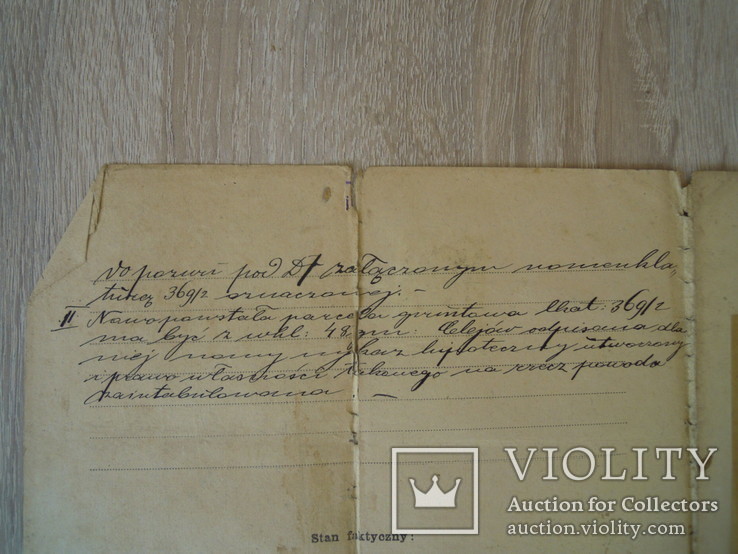 do pozwu pod D/ załączonym nomenkla,
turą 369/2 oznaczonej. –
II Nowopowstała parcela gruntowa lkat: 369/2
ma być z whl: 48 gm: Olejów odpisana dla
niej nowy wykaz hipoteczny utworzony
i prawo własności takowego na rzecz powoda
zaintabulowana –
Stan faktyczny:
VIOLITY
Auction for Collectors
auction.violity.com